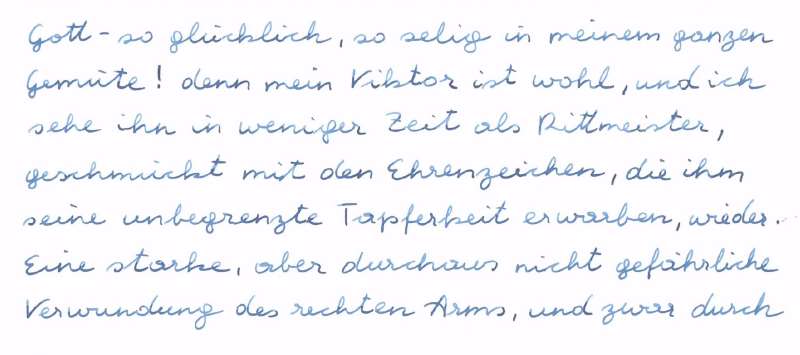 Gott - so glücklich, so selig in meinem ganzen
Gemüte! denn mein Viktor ist wohl, und ich
sehe ihn in weniger Zeit als Rittmeister,
geschmückt mit den Ehrenzeichen, die ihm
seine unbegrenzte Tapferkeit erwarben, wieder.
Eine starke, aber durchaus nicht gefährliche
Verwundung des rechten Arms, und zwar durch